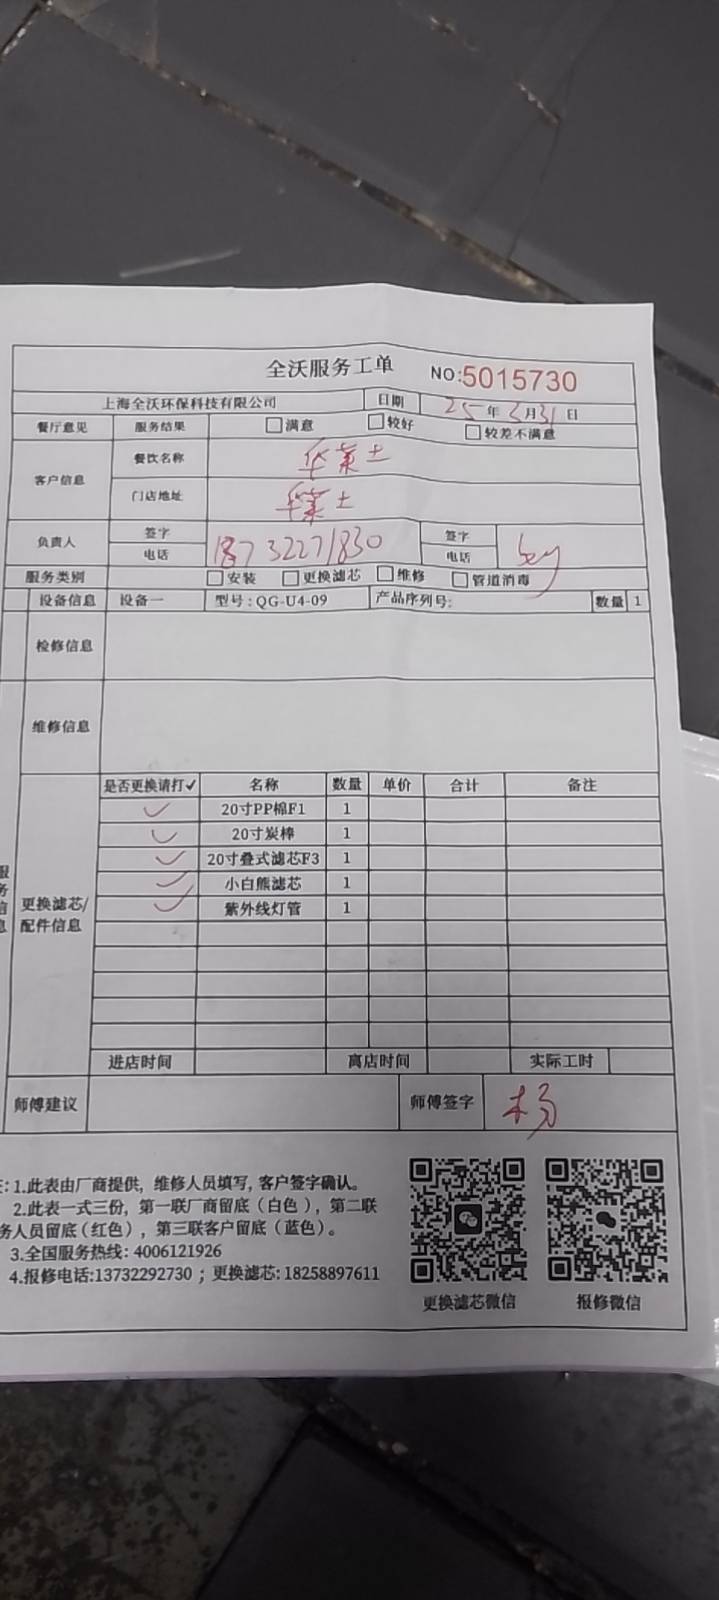 全沃服务工单 NO:5015730
上海全沃环保科技有限公司 日期 25年3月31日
餐厅意见 服务结果 满意 较好 较差不满意
客户信息 餐饮名称 华莱士
门店地址 华莱士
负责人 签字 签字
电话 18732271830 电话
服务类别 安装 更换滤芯 维修 管道消毒
设备信息 设备一 型号:QG-U4-09 产品序列号: 数量 1
检修信息
维修信息
是否更换请打✓ 名称 数量 单价 合计 备注
✓ 20寸PP棉F1 1
✓ 20寸炭棒 1
✓ 20寸叠式滤芯F3 1
✓ 小白熊滤芯 1
✓ 紫外线灯管 1
服务信息
更换滤芯/
配件信息
进店时间 离店时间 实际工时
师傅建议 师傅签字 杨
:1.此表由厂商提供, 维修人员填写, 客户签字确认。
2.此表一式三份, 第一联厂商留底(白色), 第二联
务人员留底(红色), 第三联客户留底(蓝色)。
3.全国服务热线: 4006121926
4.报修电话:13732292730 ; 更换滤芯: 18258897611
更换滤芯微信 报修微信